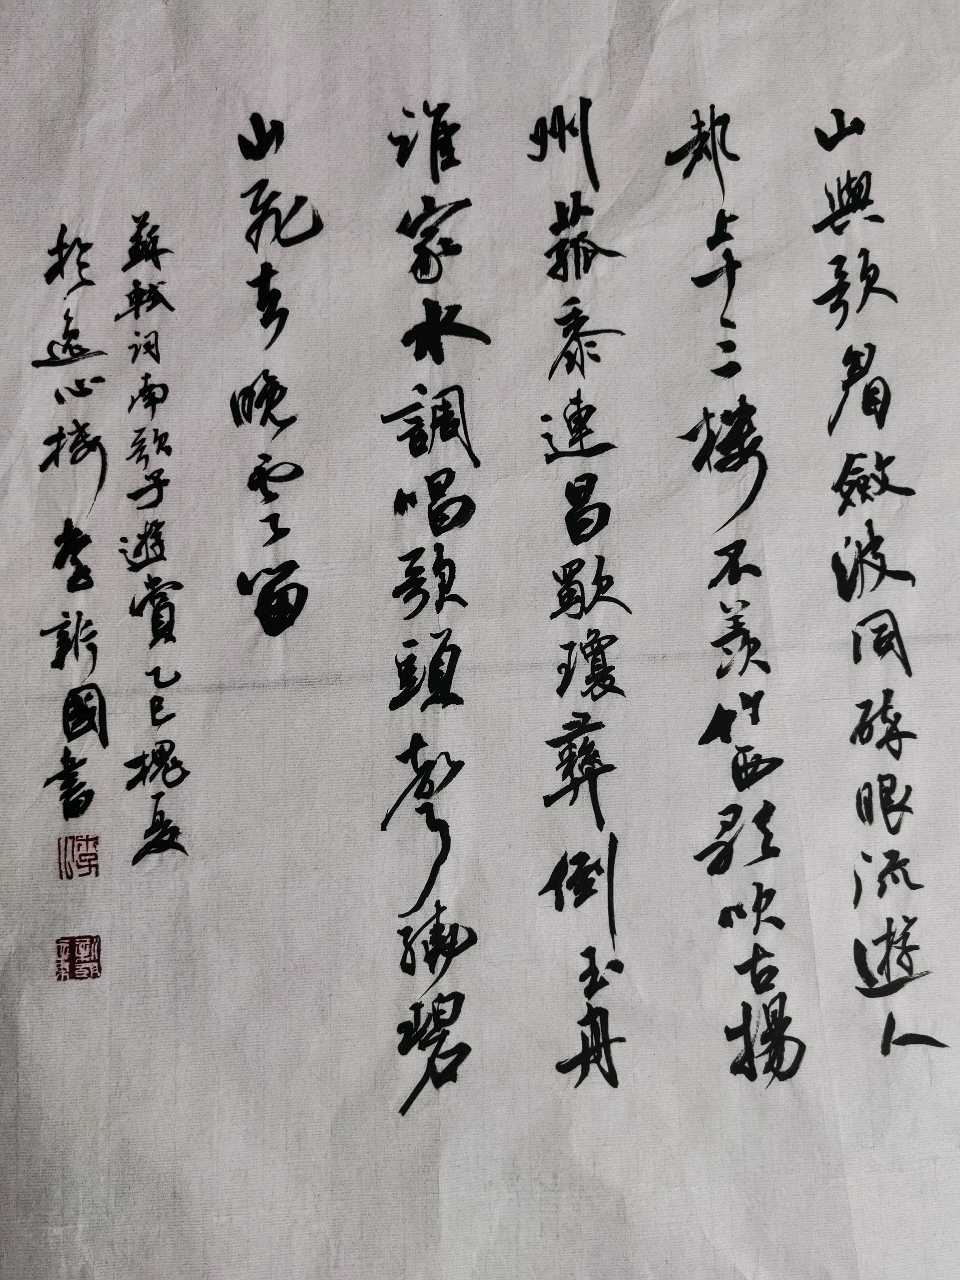 山與歌眉斂波同醉眼流遊人
都上十三楼不羨竹西歌吹古揚
州菰黍連昌歜瓊彝倒玉舟
誰家水調唱歌頭聲繞碧
山飛去晚云留
蘇軾词南歌子遊賞乙巳槐夏
於心楼李國書